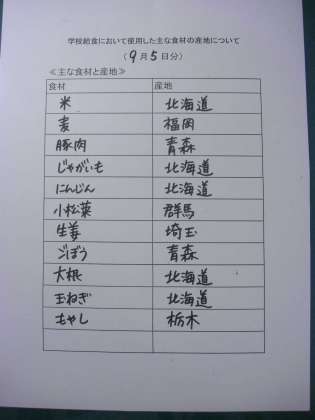 学校給食において使用した主な食材の産地について
(9月5日分)
≪主な食材と産地≫
食材 産地
米 北海道
麦 福岡
豚肉 青森
じゃがいも 北海道
にんじん 北海道
小松菜 群馬
生姜 埼玉
ごぼう 青森
大根 北海道
玉ねぎ 北海道
もやし 栃木